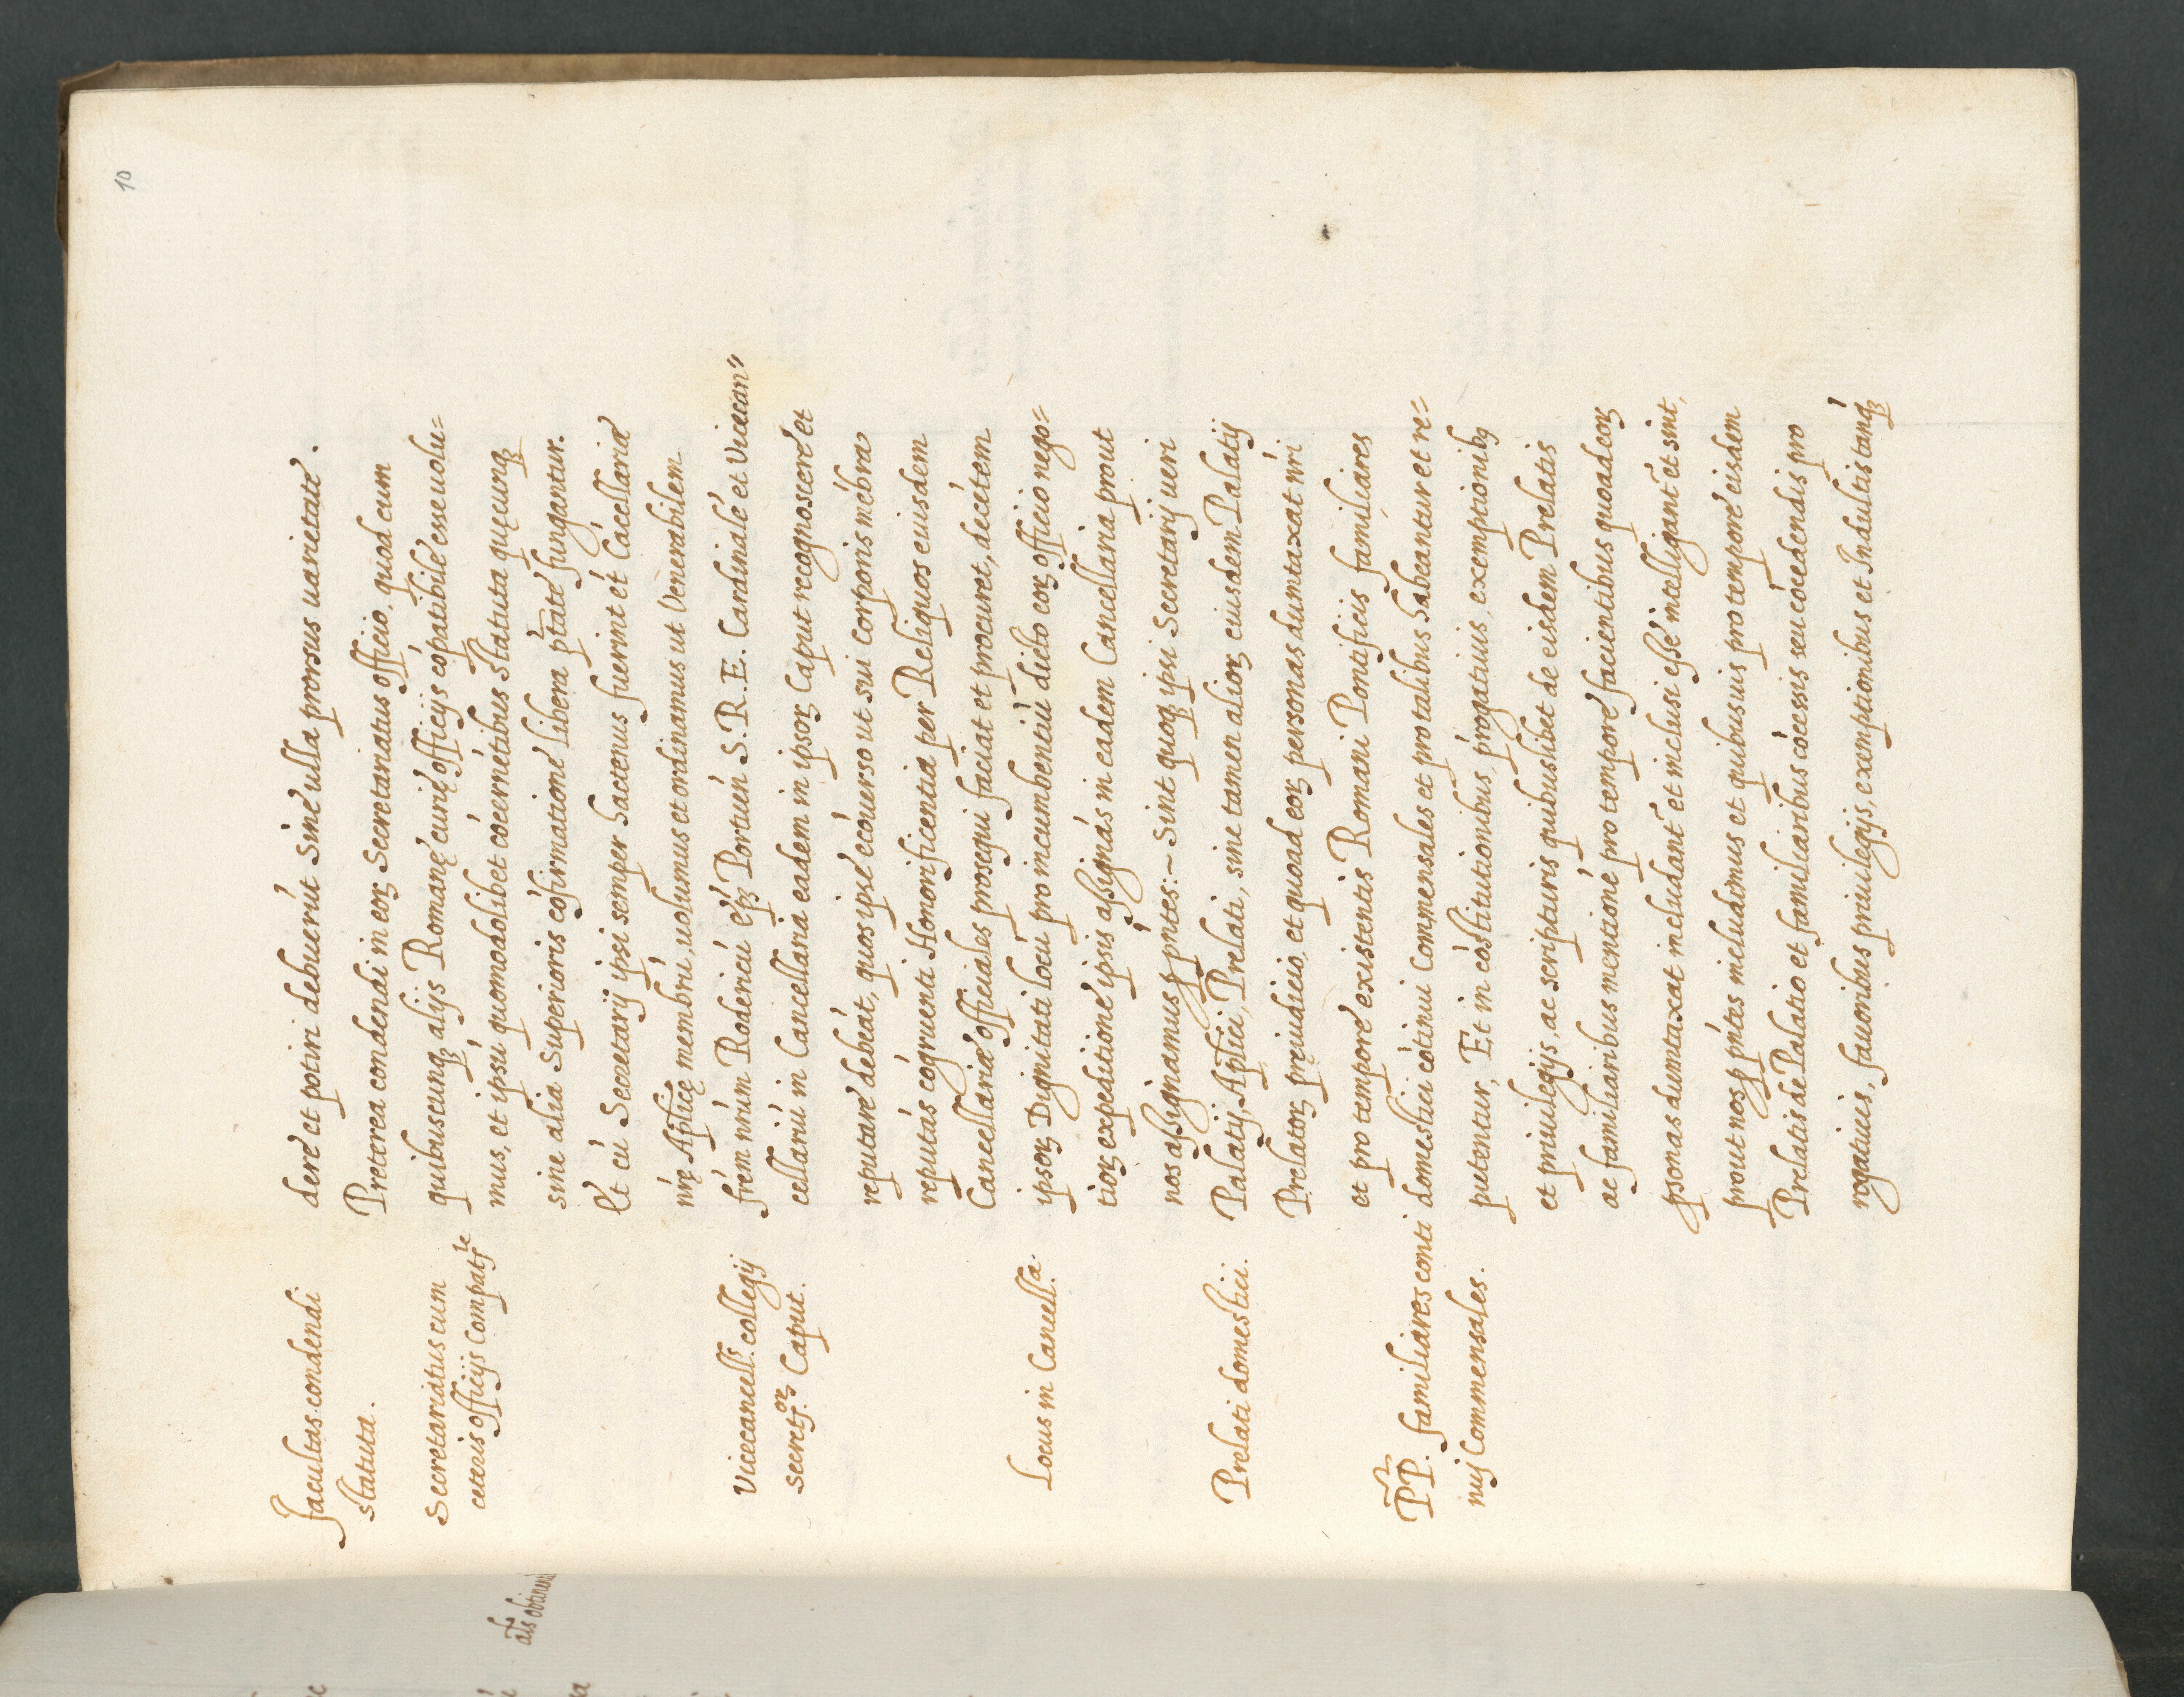 10
facultas condendi
statuta.
Secretariatus cum
ceteris officijs Compat.le
Vicecancell.s collegij
secret.orꝝ Caput.
Locus in Cancell.a
Prelati domestici.
PP. familiares conti
nuj Commensales.
dere et potiri debuerūt Sine ulla prorsus uarietate.
Preterea condendi in eoꝝ Secretariatus officio, quod cum
quibuscunqꝫ alijs Romanę curię officijs cōpatibile esse uolu=
mus, et ipsū quomodolibet cōcernētibus Statuta quęcunqꝫ
sine alia Superioris cōfirmatione libera ptāte fungantur.
Et cū Secretarij ipsi semper hactenus fuerint et Cācellariæ
nr̄ę Aplicę membrū, uolumus et ordinamus ut Venerabilem
frēm nrūm Rodericū Ep̄ꝫ Portuēn S. R. E. Cardinalē et Vicecan=
cellariū in Cancellaria eadem in ipsoꝝ Caput recognoscere et
reputare debeāt, quos ipse ecōuerso ut sui corporis mēbra
reputās cōgruenti Honorificentia per Reliquos eiusdem
Cancellariæ officiales prosequi faciat et procuret, decētem
ipsoꝝ Dignitati locū pro incumbentiū dicto eoꝝ officio nego=
tioꝝ expeditione ipsis assignās in eadem Cancellaria prout
nos assignamus ꝑ pn̄tes:~ Sint quoqꝫ ipsi Secretarij ueri
Palatij Aplici, Prelati, sine tamen alioꝝ eiusdem Palatij
Prelatoꝝ pręiudicio, et quoad eoꝝ personas dumtaxat nr̄i
et pro tempore existentis Romani Pontificis familiares
domestici cōtinui Commensales et pro talibus habeantur et re=
putentur, Et in cōstitutionibus, prōgatiuis, exemptionibꝰ
et priuilegijs, ac scripturis quibuslibet de eisdem Prelatis
ac familiaribus mentionē pro tempore facientibus quoad eoꝝ
ꝑsonas dumtaxat includant̄ et inclusi esse intelligant̄ et sint,
prout nos ꝑ pn̄tes includimus et quibusuis pro tempore eisdem
Prelatis de Palatio et familiaribus cōcessis seu cōcedendis pro
rogatiuis, fauoribus priuilegijs, exemptionibus et Indultis tanqꝫ